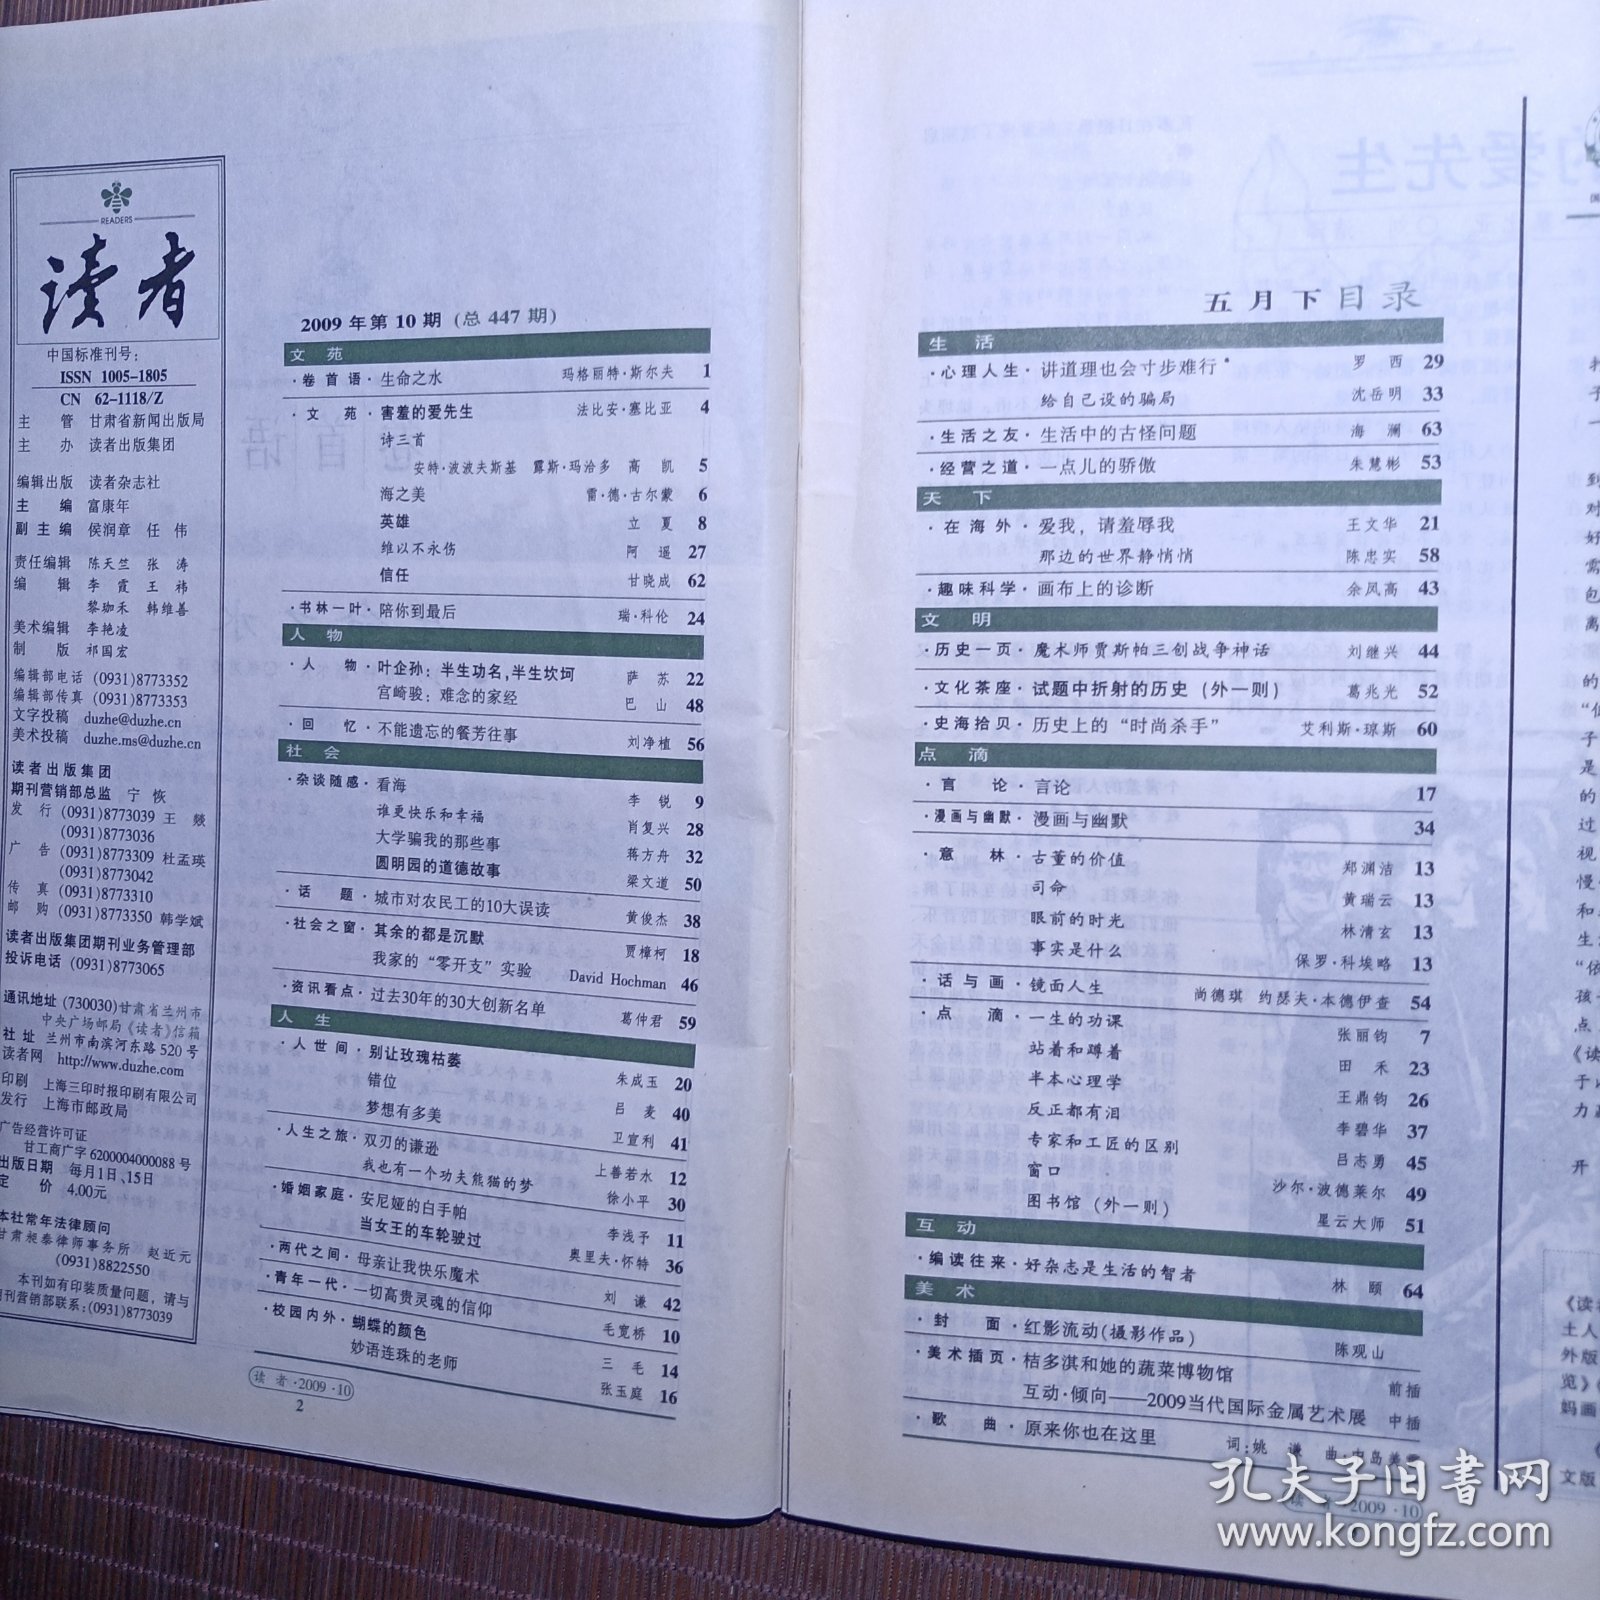 READERS
读者
中国标准刊号:
ISSN 1005-1805
CN 62-1118/Z
主 管 甘肃省新闻出版局
主 办 读者出版集团
编辑出版 读者杂志社
主 编 富康年
副主编 侯润章 任 伟
责任编辑 陈天竺 张 涛
编 辑 李 霞 王 祎
黎珈禾 韩维善
美术编辑 李艳凌
制 版 祁国宏
编辑部电话 (0931)8773352
编辑部传真 (0931)8773353
文字投稿 duzhe@duzhe.cn
美术投稿 duzhe.ms@duzhe.cn
读者出版集团
期刊营销部总监 宁 恢
发 行 (0931)8773039 王 燚
(0931)8773036
广 告 (0931)8773309 杜孟瑛
(0931)8773042
传 真 (0931)8773310
邮 购 (0931)8773350 韩学斌
读者出版集团期刊业务管理部
投诉电话 (0931)8773065
通讯地址 (730030)甘肃省兰州市
中央广场邮局《读者》信箱
社 址 兰州市南滨河东路520号
读者网 http://www.duzhe.com
印刷 上海三印时报印刷有限公司
发行 上海市邮政局
广告经营许可证
甘工商广字 6200004000088 号
出版日期 每月1日、15日
定 价 4.00元
本社常年法律顾问
甘肃昶泰律师事务所 赵近元
(0931)8822550
本刊如有印装质量问题,请与
期刊营销部联系:(0931)8773039
2009 年第 10 期 (总 447 期)
文 苑
·卷首语·生命之水 玛格丽特·斯尔夫 1
·文 苑·害羞的爱先生 法比安·塞比亚 4
诗三首
安特·波波夫斯基 露斯·玛洽多 高 凯 5
海之美 雷·德·古尔蒙 6
英雄 立 夏 8
维以不永伤 阿 遥 27
信任 甘晓成 62
·书林一叶·陪你到最后 瑞·科伦 24
人 物
·人 物·叶企孙:半生功名,半生坎坷 萨 苏 22
宫崎骏:难念的家经 巴 山 48
·回 忆·不能遗忘的餐芳往事 刘净植 56
社 会
·杂谈随感·看海 李 锐 9
谁更快乐和幸福 肖复兴 28
大学骗我的那些事 蒋方舟 32
圆明园的道德故事 梁文道 50
·话 题·城市对农民工的10大误读 黄俊杰 38
·社会之窗·其余的都是沉默 贾樟柯 18
我家的“零开支”实验 David Hochman 46
·资讯看点·过去30年的30大创新名单 葛仲君 59
人 生
·人世间·别让玫瑰枯萎 朱成玉 20
错位 吕 麦 40
梦想有多美 卫宣利 41
·人生之旅·双刃的谦逊 上善若水 12
我也有一个功夫熊猫的梦 徐小平 30
·婚姻家庭·安尼娅的白手帕 李浅予 11
当女王的车轮驶过 奥里夫·怀特 36
·两代之间·母亲让我快乐魔术 刘 谦 42
·青年一代·一切高贵灵魂的信仰 毛宽桥 10
·校园内外·蝴蝶的颜色 三 毛 14
妙语连珠的老师 张玉庭 16
读者·2009·10
2
五月下目录
生 活
·心理人生·讲道理也会寸步难行 罗 西 29
给自己设的骗局 沈岳明 33
·生活之友·生活中的古怪问题 海 澜 63
·经营之道·一点儿的骄傲 朱慧彬 53
天 下
·在海外·爱我,请羞辱我 王文华 21
那边的世界静悄悄 陈忠实 58
·趣味科学·画布上的诊断 余凤高 43
文 明
·历史一页·魔术师贾斯帕三创战争神话 刘继兴 44
·文化茶座·试题中折射的历史(外一则) 葛兆光 52
·史海拾贝·历史上的“时尚杀手” 艾利斯·琼斯 60
点 滴
·言 论·言论 17
·漫画与幽默·漫画与幽默 34
·意 林·古董的价值 郑渊洁 13
司命 黄瑞云 13
眼前的时光 林清玄 13
事实是什么 保罗·科埃略 13
·话与画·镜面人生 尚德琪 约瑟夫·本德伊查 54
·点 滴·一生的功课 张丽钧 7
站着和蹲着 田 禾 23
半本心理学 王鼎钧 26
反正都有泪 李碧华 37
专家和工匠的区别 吕志勇 45
窗口 沙尔·波德莱尔 49
图书馆(外一则) 星云大师 51
互 动
·编读往来·好杂志是生活的智者 林 颐 64
美 术
·封 面·红影流动(摄影作品) 陈观山
·美术插页·桔多淇和她的蔬菜博物馆 前插
互动·倾向——2009当代国际金属艺术展 中插
·歌 曲·原来你也在这里 词:姚 谦 曲:中岛美
读者·2009·10
孔夫子旧书网
www.kongfz.com